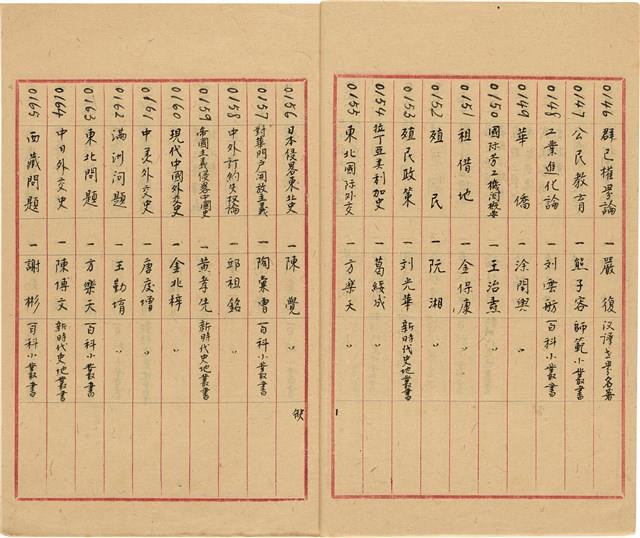 0146 群己權界論 一 嚴復 汉译世界名著
0147 公民教育 一 熊子容 師範小叢書
0148 工業進化論 一 刘雲舫 百科小叢書
0149 華僑 一 涂開輿 〃
0150 國際劳工機関概要 一 王治焘 〃
0151 租借地 一 金保康 〃
0152 殖民 一 阮湘 〃
0153 殖民政策 一 刘光華 新時代史地叢書
0154 拉丁亞美利加史 一 葛綏成 〃
0155 東北國际外交 一 方樂天 〃
0156 日本侵畧東北史 一 陳覺 〃 缺
0157 對華門户開放主義 一 陶彙曾 百科小叢書
0158 中外訂約失权論 一 邱祖銘 〃
0159 帝國主義侵畧中國史 一 黄孝先 新時代史地叢書
0160 現代中國外交史 一 金兆梓 〃
0161 中美外交史 一 唐慶增 〃
0162 滿洲问題 一 王勤堉 〃
0163 東北問題 一 方樂天 百科小叢書
0164 中日外交史 一 陳博文 新時代史地叢書
0165 西藏問題 一 謝彬 百科小叢書